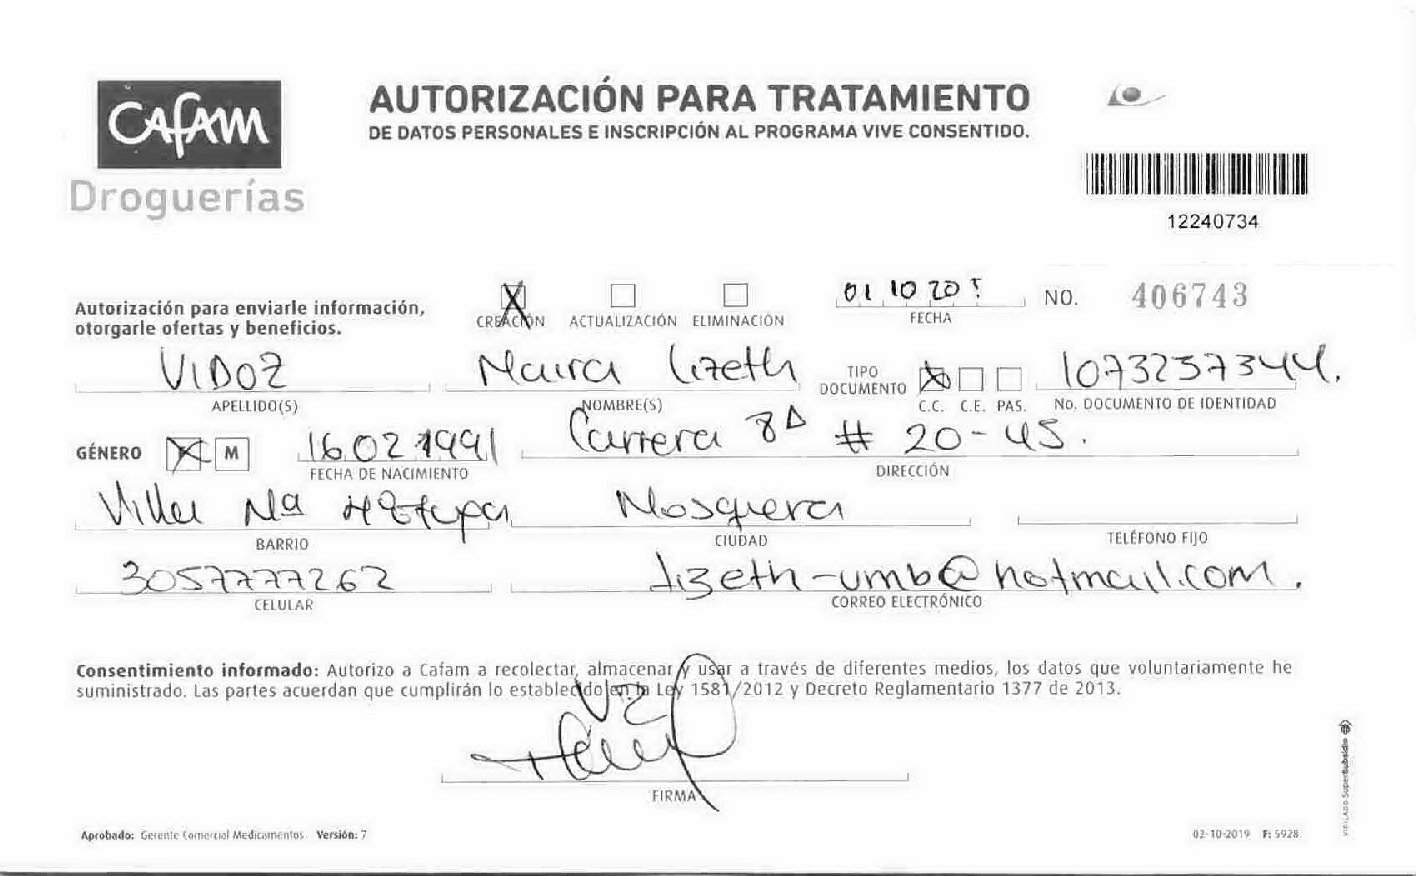 CAFAM
Droguerías
AUTORIZACIÓN PARA TRATAMIENTO
DE DATOS PERSONALES E INSCRIPCIÓN AL PROGRAMA VIVE CONSENTIDO.
12240734
Autorización para enviarle información,
otorgarle ofertas y beneficios.
CREACIÓN ACTUALIZACIÓN ELIMINACIÓN
01 10 20
FECHA
NO. 406743
VIDOZ Maira lizeth
TIPO
DOCUMENTO
1073237344.
APELLIDO(S) NOMBRE(S) C.C. C.E. PAS. No. DOCUMENTO DE IDENTIDAD
GÉNERO M 16.02 1991 Carrera 8A # 20-45.
FECHA DE NACIMIENTO DIRECCIÓN
Villa Ma Etapa Mosquera
BARRIO CIUDAD TELÉFONO FIJO
3057777262 lizeth-umb@hotmail.com.
CELULAR CORREO ELECTRÓNICO
Consentimiento informado: Autorizo a Cafam a recolectar, almacenar y usar a través de diferentes medios, los datos que voluntariamente he
suministrado. Las partes acuerdan que cumplirán lo establecido en la Ley 1581/2012 y Decreto Reglamentario 1377 de 2013.
FIRMA
Aprobado: Gerente Comercial Medicamentos Versión: 7
02-10-2019 F: 5928
VIGILADO SuperSubsidio